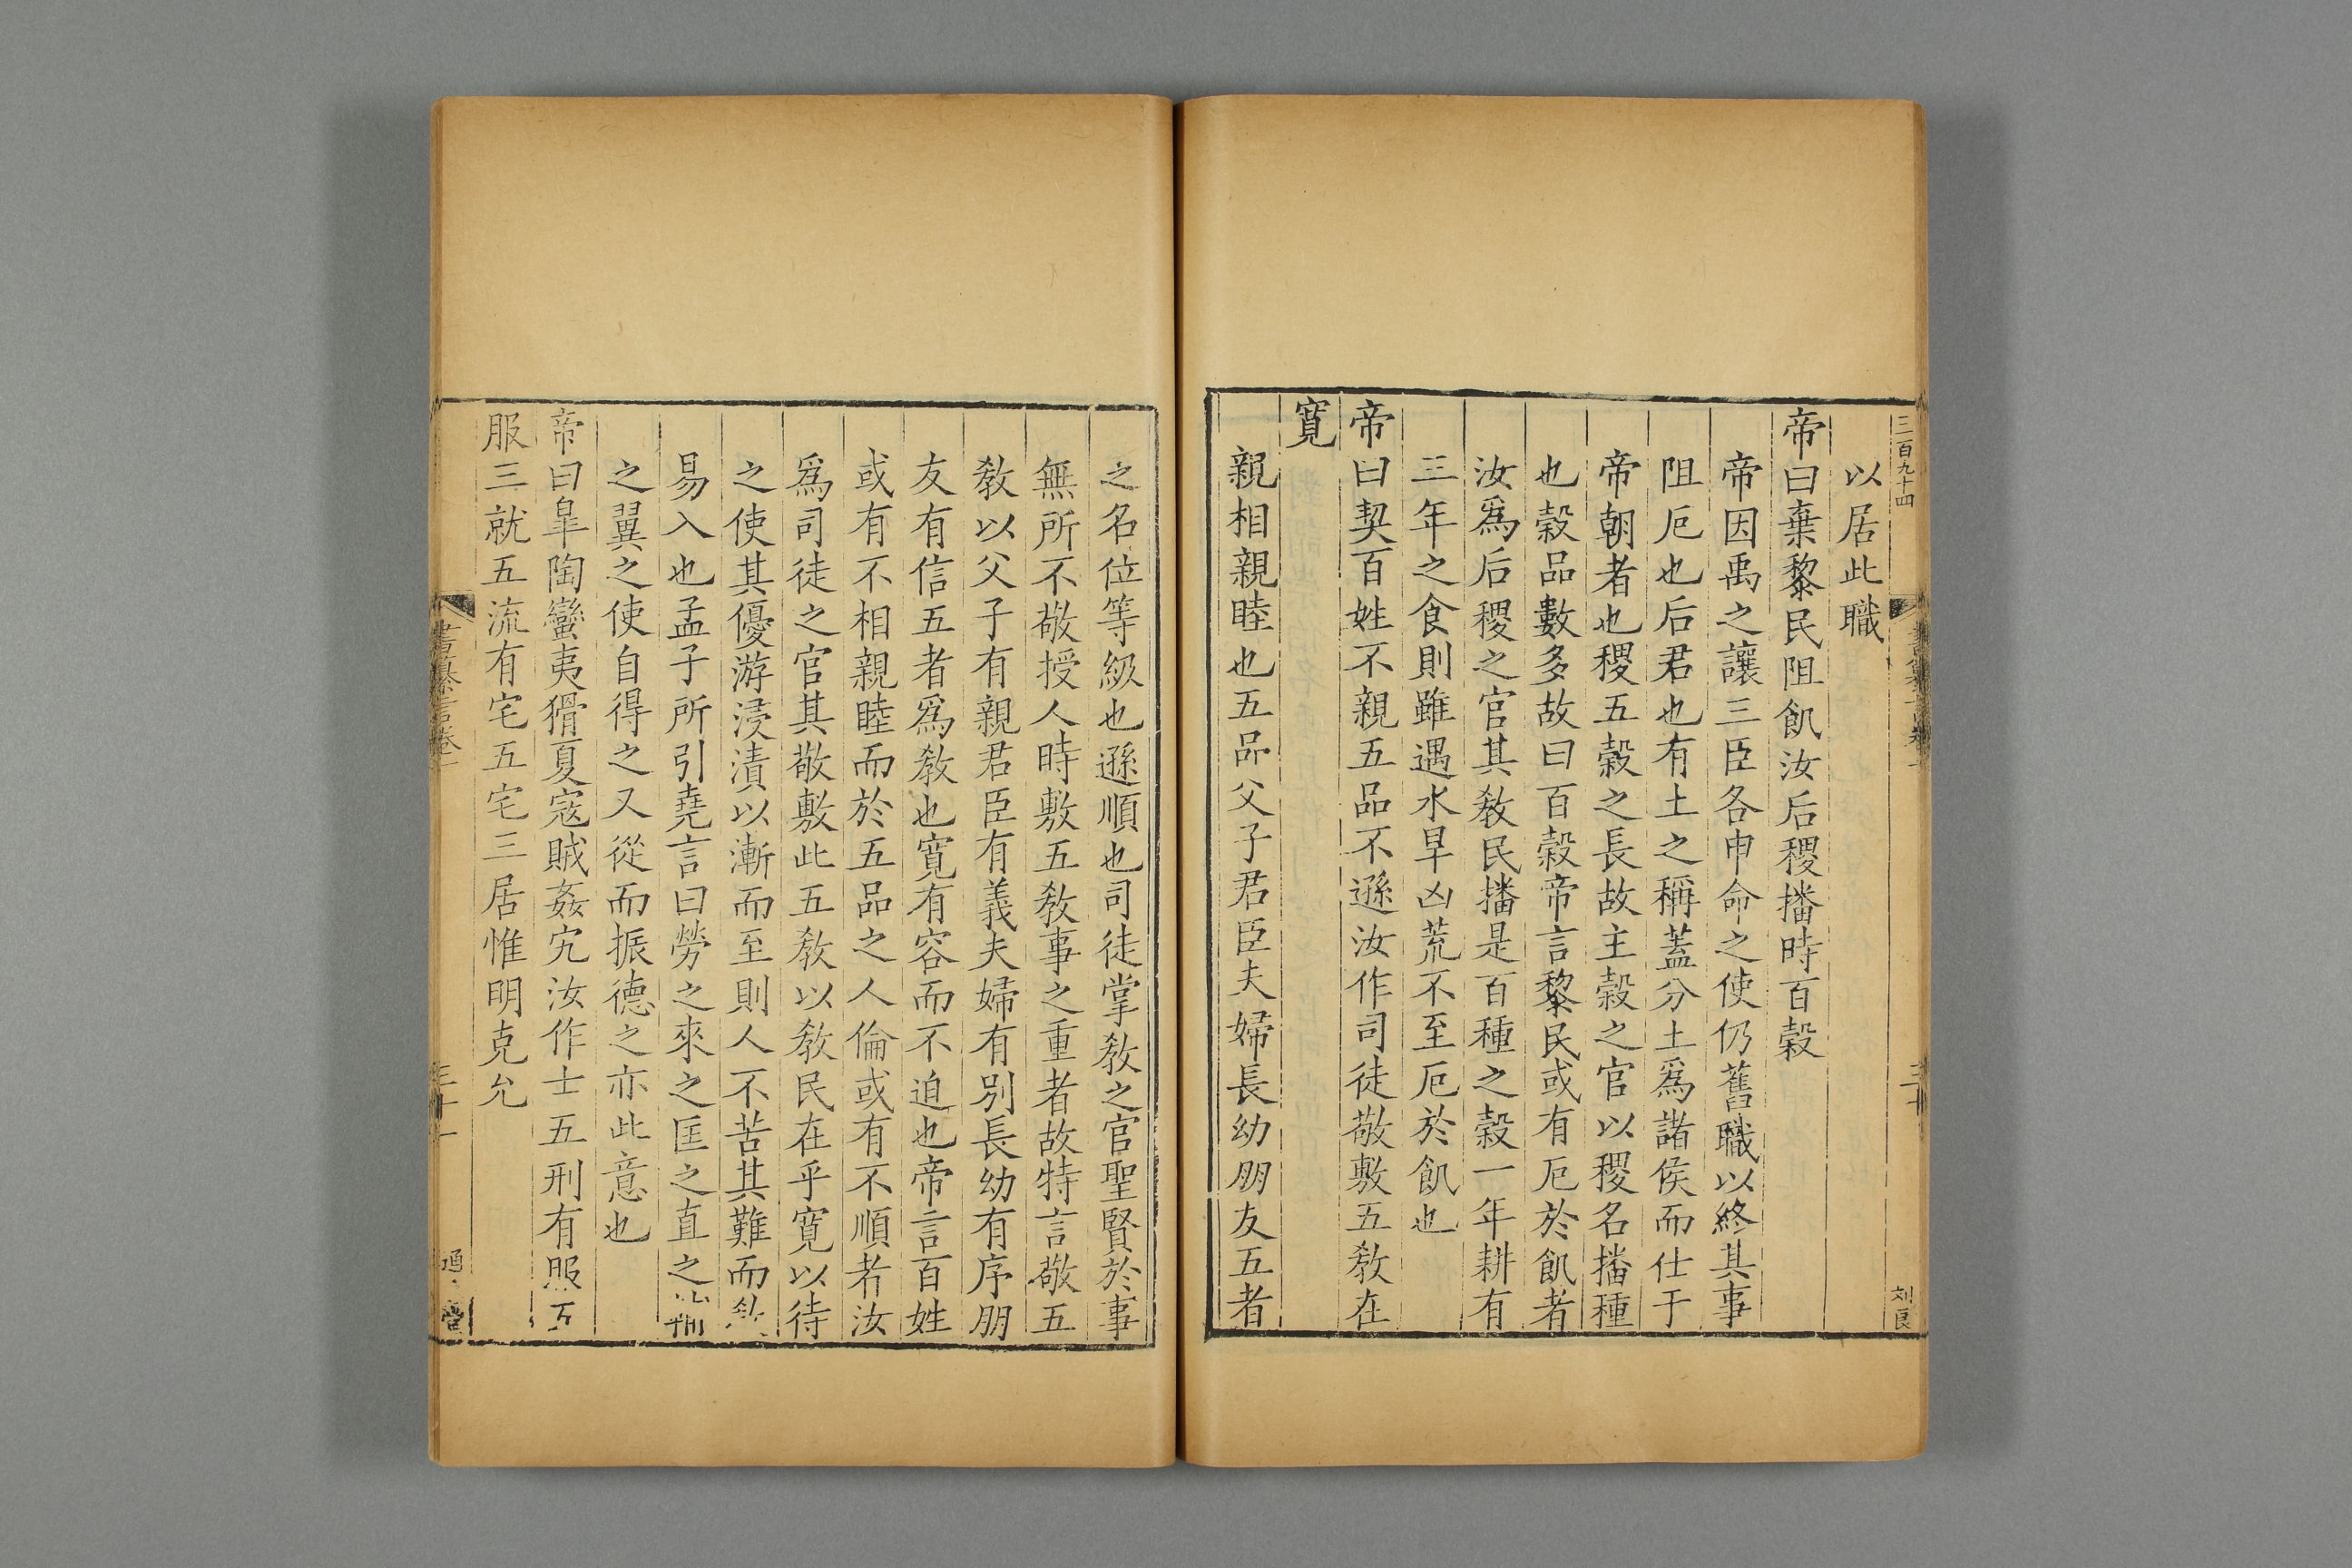 三百九十四
以居此職
帝曰棄黎民阻飢汝后稷播時百穀
帝因禹之讓三臣各申命之使仍舊職以終其事
阻厄也后君也有土之稱蓋分土爲諸侯而仕于
帝朝者也稷五穀之長故主穀之官以稷名播種
也穀品數多故曰百穀帝言黎民或有厄於飢者
汝爲后稷之官其敎民播是百種之穀一年耕有
三年之食則雖遇水旱凶荒不至厄於飢也
帝曰契百姓不親五品不遜汝作司徒敬敷五敎在
寬
親相親睦也五品父子君臣夫婦長幼朋友五者
刘良
之名位等級也遜順也司徒掌敎之官聖賢於事
無所不敬授人時敷五敎事之重者故特言敬五
敎以父子有親君臣有義夫婦有别長幼有序朋
友有信五者爲敎也寬有容而不迫也帝言百姓
或有不相親睦而於五品之人倫或有不順者汝
爲司徒之官其敬敷此五敎以敎民在乎寬以待
之使其優游浸漬以漸而至則人不苦其難而
易入也孟子所引堯言曰勞之來之匡之直之
之翼之使自得之又從而振德之亦此意也
帝曰皐陶蠻夷猾夏寇賊姦宄汝作士五刑有服五
服三就五流有宅五宅三居惟明克允
書纂言卷一
三十一